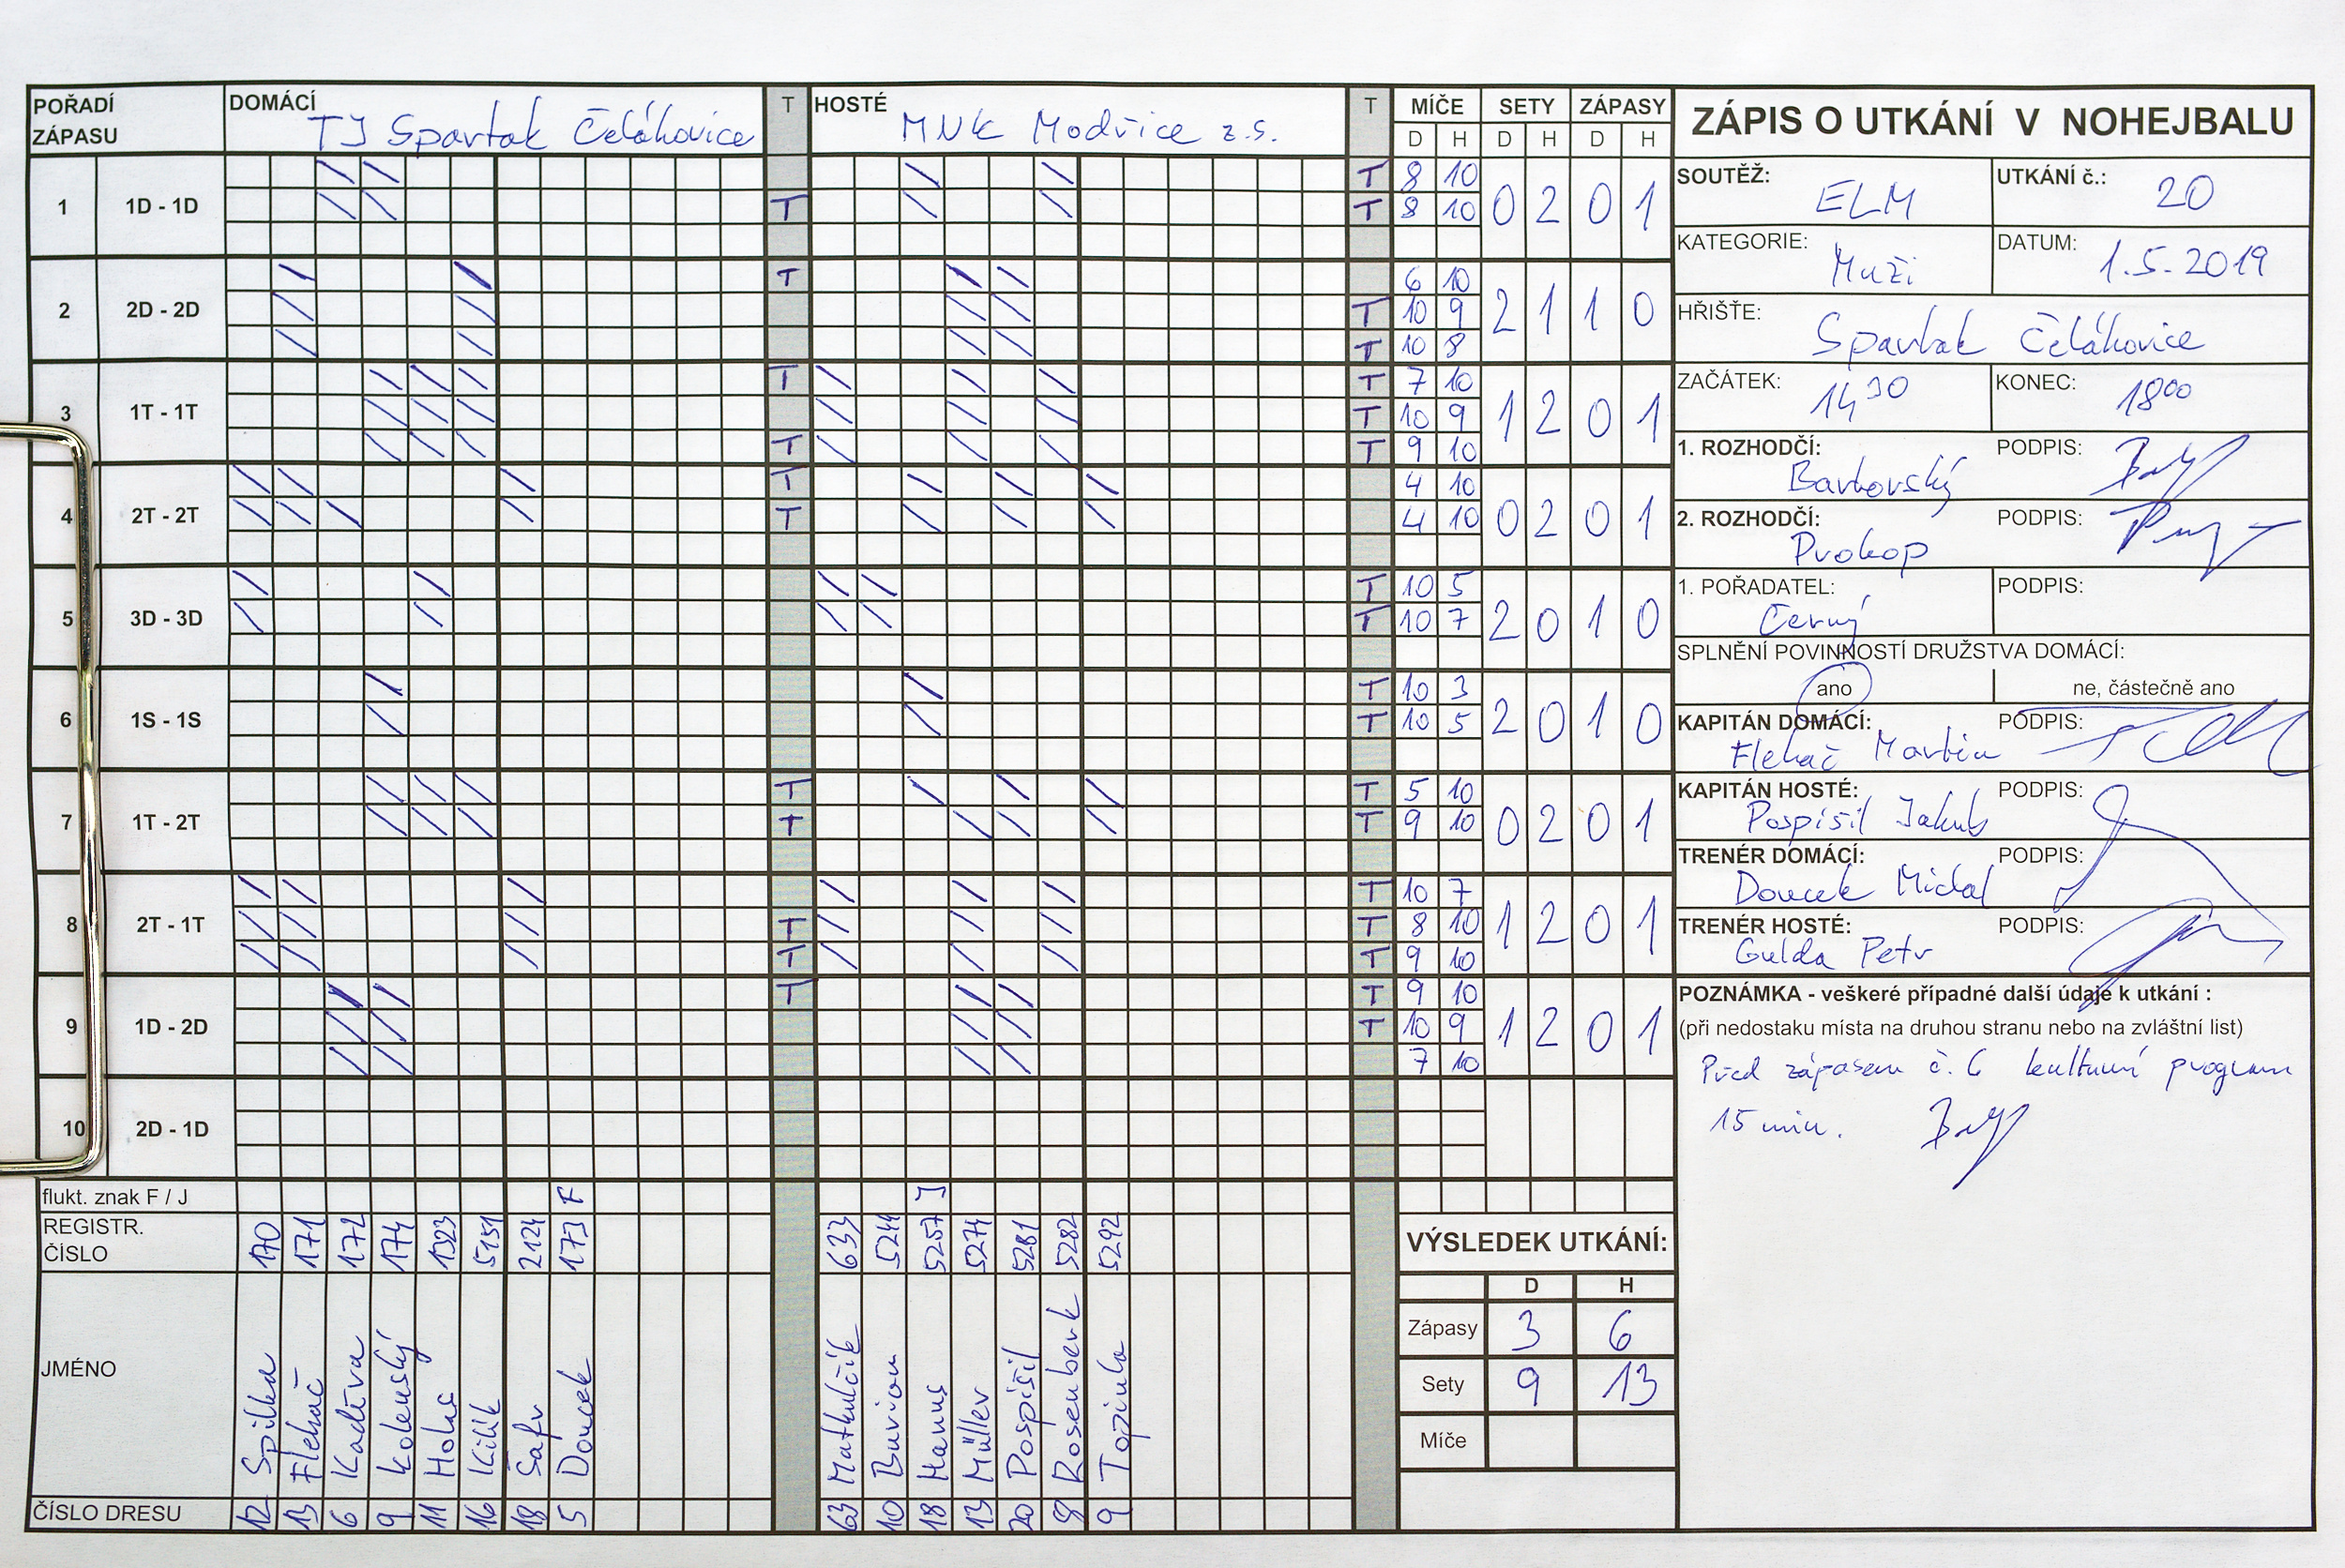 POŘADÍ ZÁPASU
DOMÁCÍ TJ Spartak Čelákovice
T
HOSTÉ MNK Modřice z.s.
T
MÍČE SETY ZÁPASY
D H D H D H
1 1D - 1D T 8 10
T T 8 10 0 2 0 1
2 2D - 2D T 6 10
T 10 9 2 1 1 0
T 10 8
3 1T - 1T T T 7 10
T 10 9 1 2 0 1
T T 9 10
4 2T - 2T T 4 10
T 4 10 0 2 0 1
5 3D - 3D T 10 5
T 10 7 2 0 1 0
6 1S - 1S T 10 3
T 10 5 2 0 1 0
7 1T - 2T T T 5 10
T T 9 10 0 2 0 1
8 2T - 1T T 10 7
T T 8 10 1 2 0 1
T T 9 10
9 1D - 2D T T 9 10
T 10 9 1 2 0 1
7 10
10 2D - 1D
flukt. znak F / J F J
REGISTR. ČÍSLO 170 171 172 174 1323 5151 2124 173 633 5244 5257 5274 5281 5282 5292
JMÉNO Spilka Flekač Kaděra Kolenský Holas Kilík Šafr Doucek Matkulčík Burion Hanus Müller Pospíšil Rosenberk Topinka
ČÍSLO DRESU 12 13 6 9 11 16 18 5 63 10 18 13 20 8 9
VÝSLEDEK UTKÁNÍ:
D H
Zápasy 3 6
Sety 9 13
Míče
ZÁPIS O UTKÁNÍ V NOHEJBALU
SOUTĚŽ: ELM
UTKÁNÍ č.: 20
KATEGORIE: Muži
DATUM: 1.5.2019
HŘIŠTE: Spartak Čelákovice
ZAČÁTEK: 14 30
KONEC: 18 00
1. ROZHODČÍ: Barborský
PODPIS:
2. ROZHODČÍ: Prokop
PODPIS:
1. POŘADATEL: Černý
PODPIS:
SPLNĚNÍ POVINNOSTÍ DRUŽSTVA DOMÁCÍ:
ano
ne, částečně ano
KAPITÁN DOMÁCÍ: Flekač Martin
PODPIS:
KAPITÁN HOSTÉ: Pospíšil Jakub
PODPIS:
TRENÉR DOMÁCÍ: Doucek Michal
PODPIS:
TRENÉR HOSTÉ: Gulda Petr
PODPIS:
POZNÁMKA - veškeré případné další údaje k utkání :
(při nedostaku místa na druhou stranu nebo na zvláštní list)
Před zápasem č. 6 kulturní program
15 min.